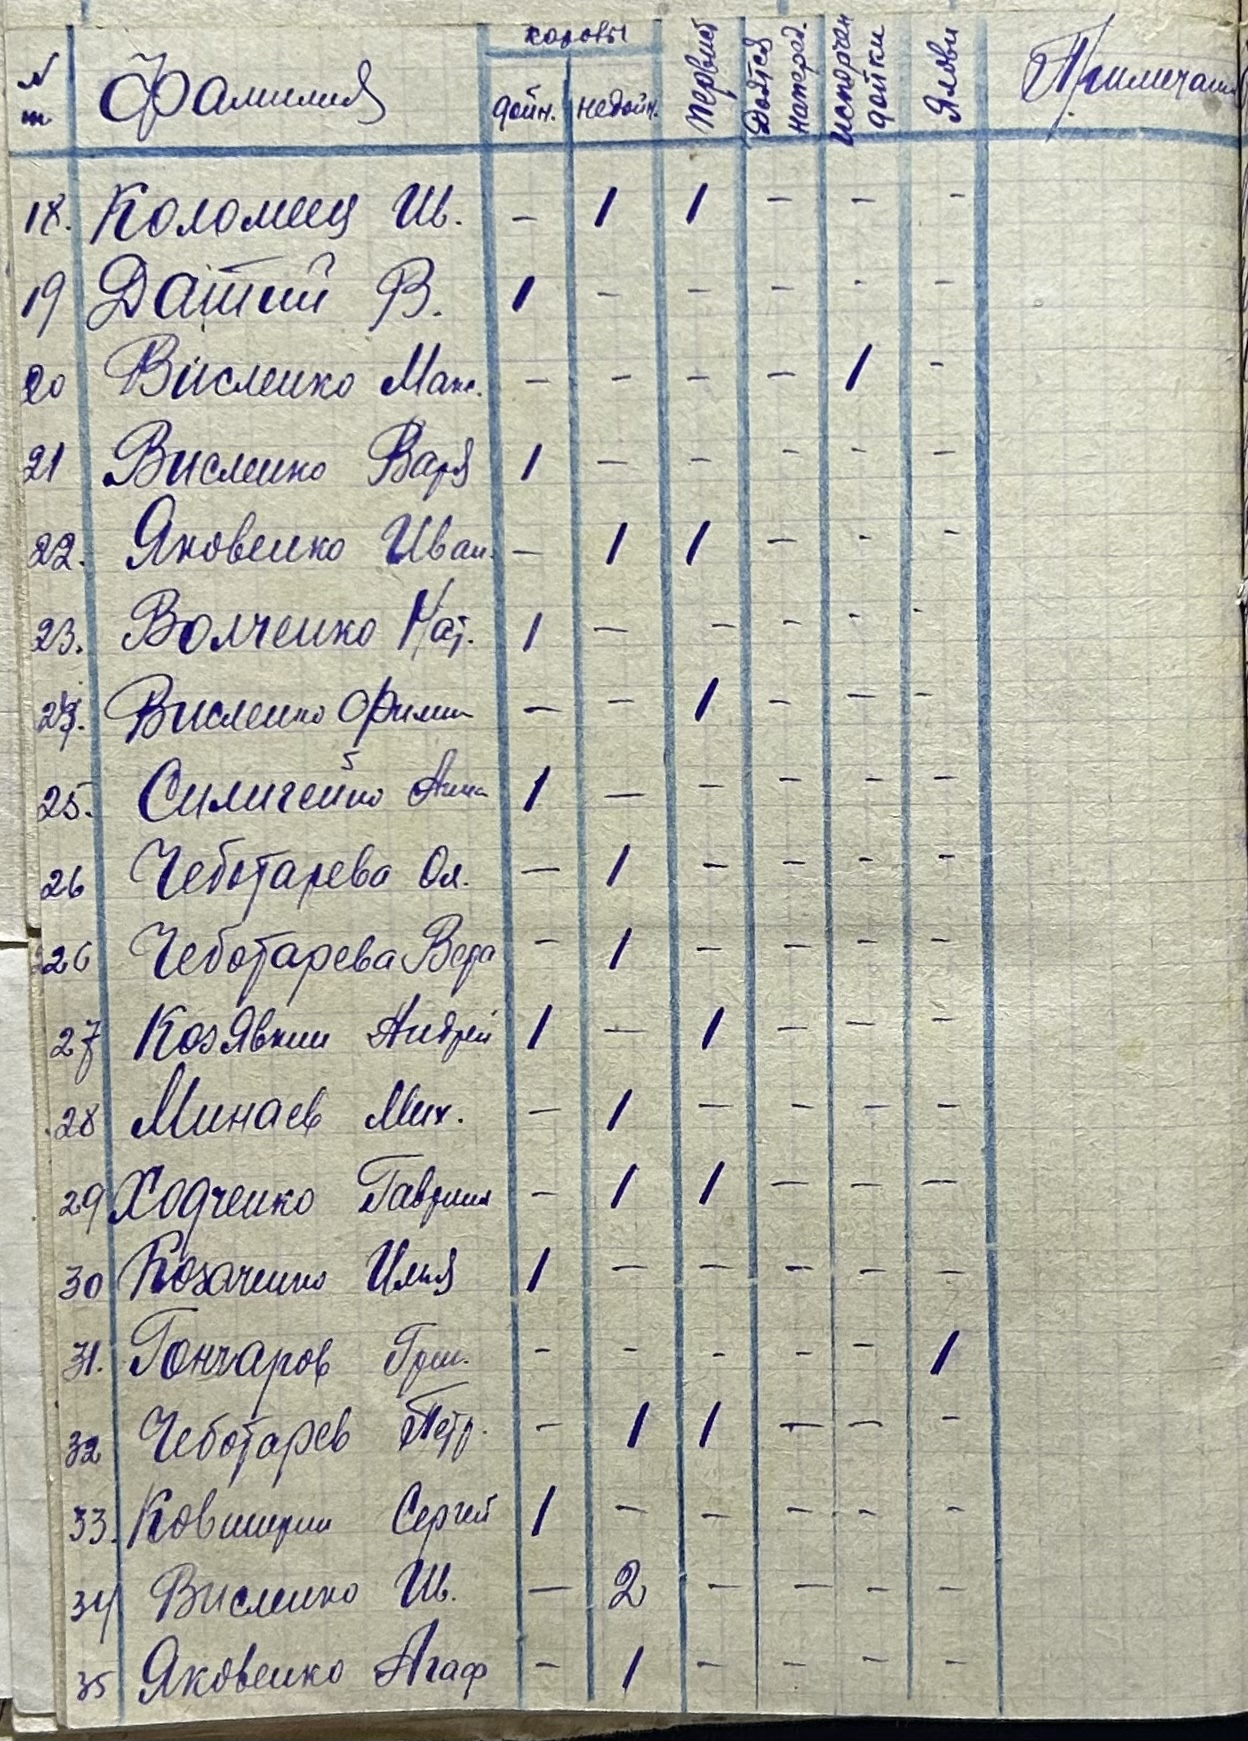 № п. Фамилия коровы дойн. недойн. Первист Доятся наперед. Испорчен дойки Ялови Примечани
18. Коломеец Ив. - 1 1 - - -
19 Датий В. 1 - - - - -
20 Висленко Макс. - - - - 1 -
21 Висленко Варя 1 - - - - -
22. Яковенко Иван. - 1 1 - - -
23. Волченко Нат. 1 - - - - -
24. Висленко Фимия - - 1 - - -
25. Силигейко Анна 1 - - - - -
26 Чеботарева Ол. - 1 - - - -
26 Чеботарева Вера - 1 - - - -
27 Козявкин Андрей 1 - 1 - - -
28 Минаев Мих. - 1 - - - -
29 Ходченко Гаврила - 1 1 - - -
30 Козаченко Илья 1 - - - - -
31. Гончаров Гри. - - - - - 1
32 Чеботарев Петр. - 1 1 - - -
33. Ковширин Сергей 1 - - - - -
34 Висленко Ив. - 2 - - - -
35 Яковенко Агаф - 1 - - - -